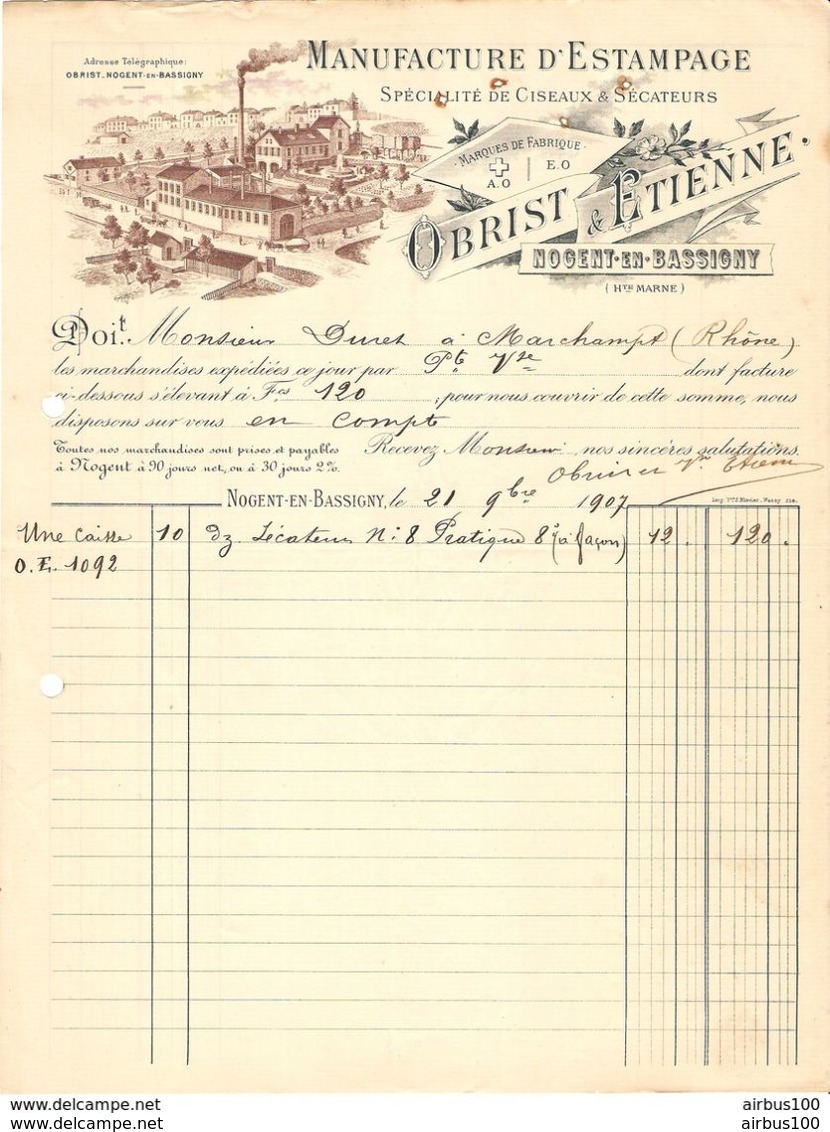 Adresse Télégraphique:
OBRIST_NOGENT-EN-BASSIGNY
MANUFACTURE D'ESTAMPAGE
SPÉCIALITÉ DE CISEAUX & SÉCATEURS
MARQUES DE FABRIQUE
A.O E.O
OBRIST & ETIENNE
NOGENT-EN-BASSIGNY
(HTE MARNE)
Doit Monsieur Duret à Marchampt (Rhône)
les marchandises expédiées ce jour par Pte Vse dont facture
ci-dessous s'élevant à Fcs 120 ; pour nous couvrir de cette somme, nous
disposons sur vous en Compte
Toutes nos marchandises sont prises et payables
à Nogent à 90 jours net, ou à 30 jours 2%.
Recevez Monsieur nos sincères salutations.
Obrist et Etienne
NOGENT-EN-BASSIGNY, le 21 9bre 1907
Une Caisse 10 dz Sécateurs No 8 Pratique 8 (à façon) 12 . 120 .
O.E. 1092
airbus100 airbus100
airbus100 airbus100